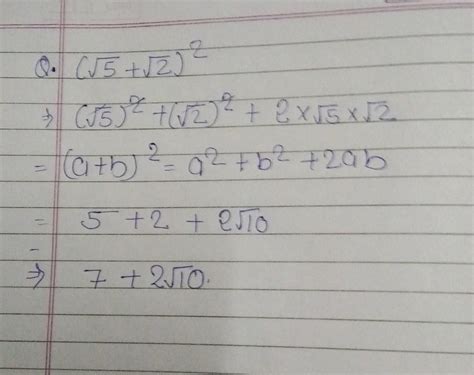 Q. (√5 + √2)²
⇒ (√5)² + (√2)² + 2×√5×√2
= (a+b)² = a² + b² + 2ab
= 5 + 2 + 2√10
-
⇒ 7 + 2√10.